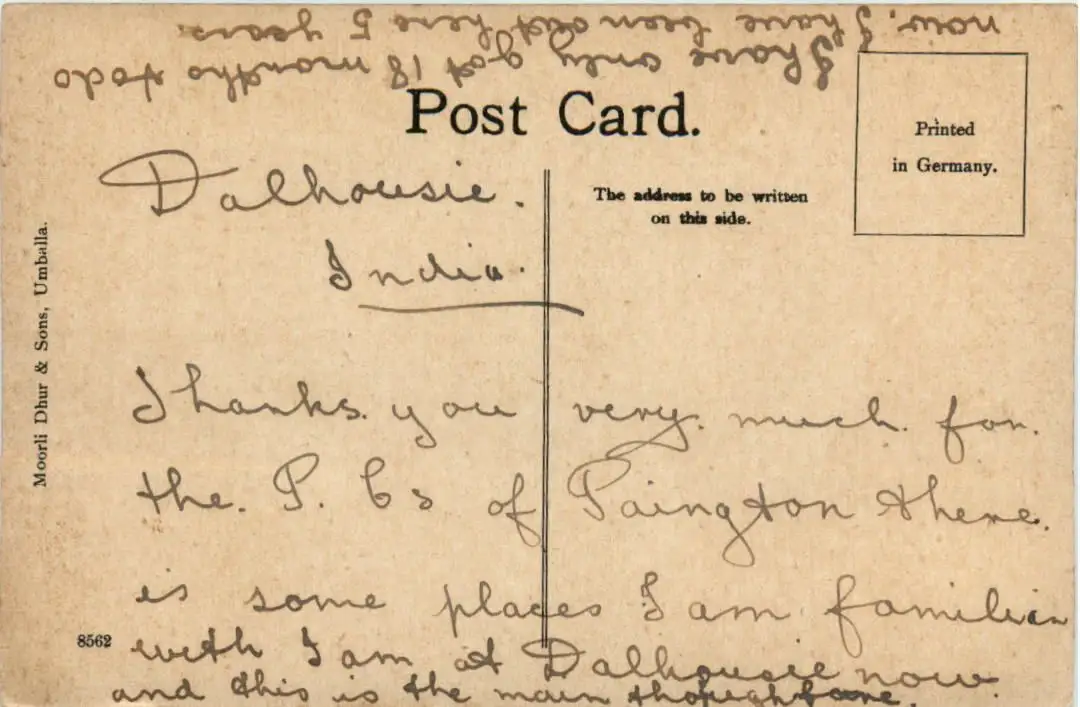 Post Card.
Printed
in Germany.
The address to be written
on this side.
Moorli Dhur & Sons, Umballa.
8562
Dalhousie.
India.
Thanks you very much for.
the. P. Cs of Paington there.
is some places I am familiar
with I am at Dalhousie now.
and this is the main thoughfare.
I have only got 18 months to do
now. I have been out here 5 years.